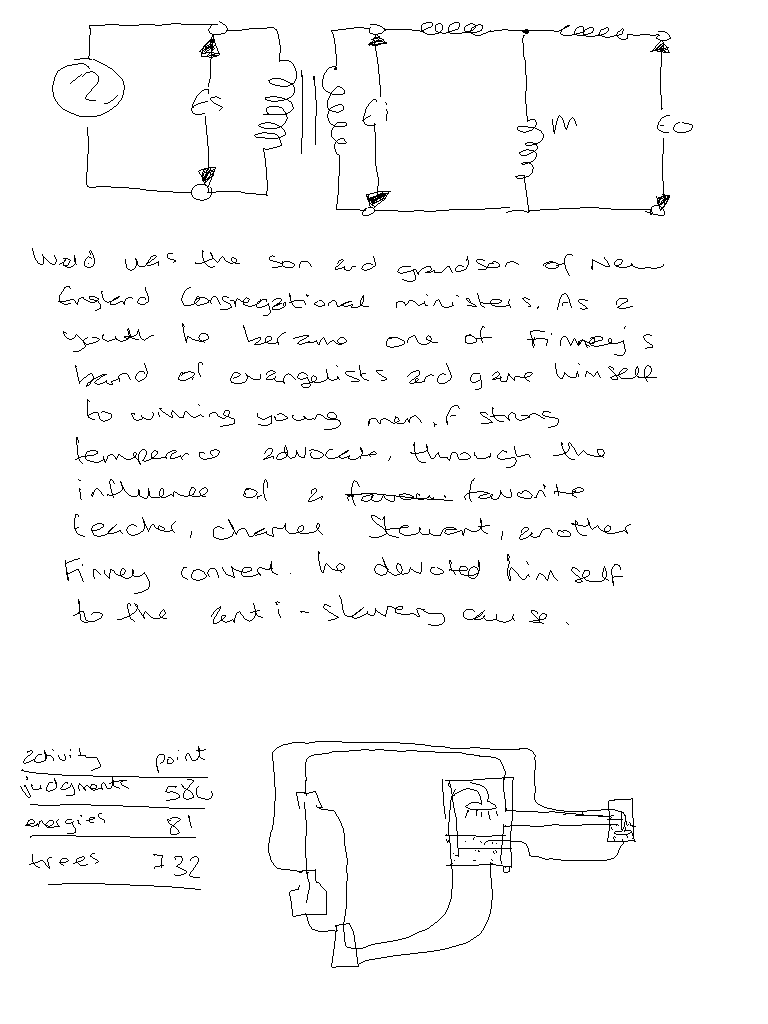 Es Ei M Eo
Weld was the son and grandson of New
England Congregational ministers. As a
youth he became one of Finney's
band of evangelists and gave himself
to winning young men. A strong
temperance advocate, through the
influence of a favorite
teacher, Charles Stewart, another
Finney convert. he devoted himself
to the anti-slavery cause.
activity point
judgments 580
energies 81
trees 732